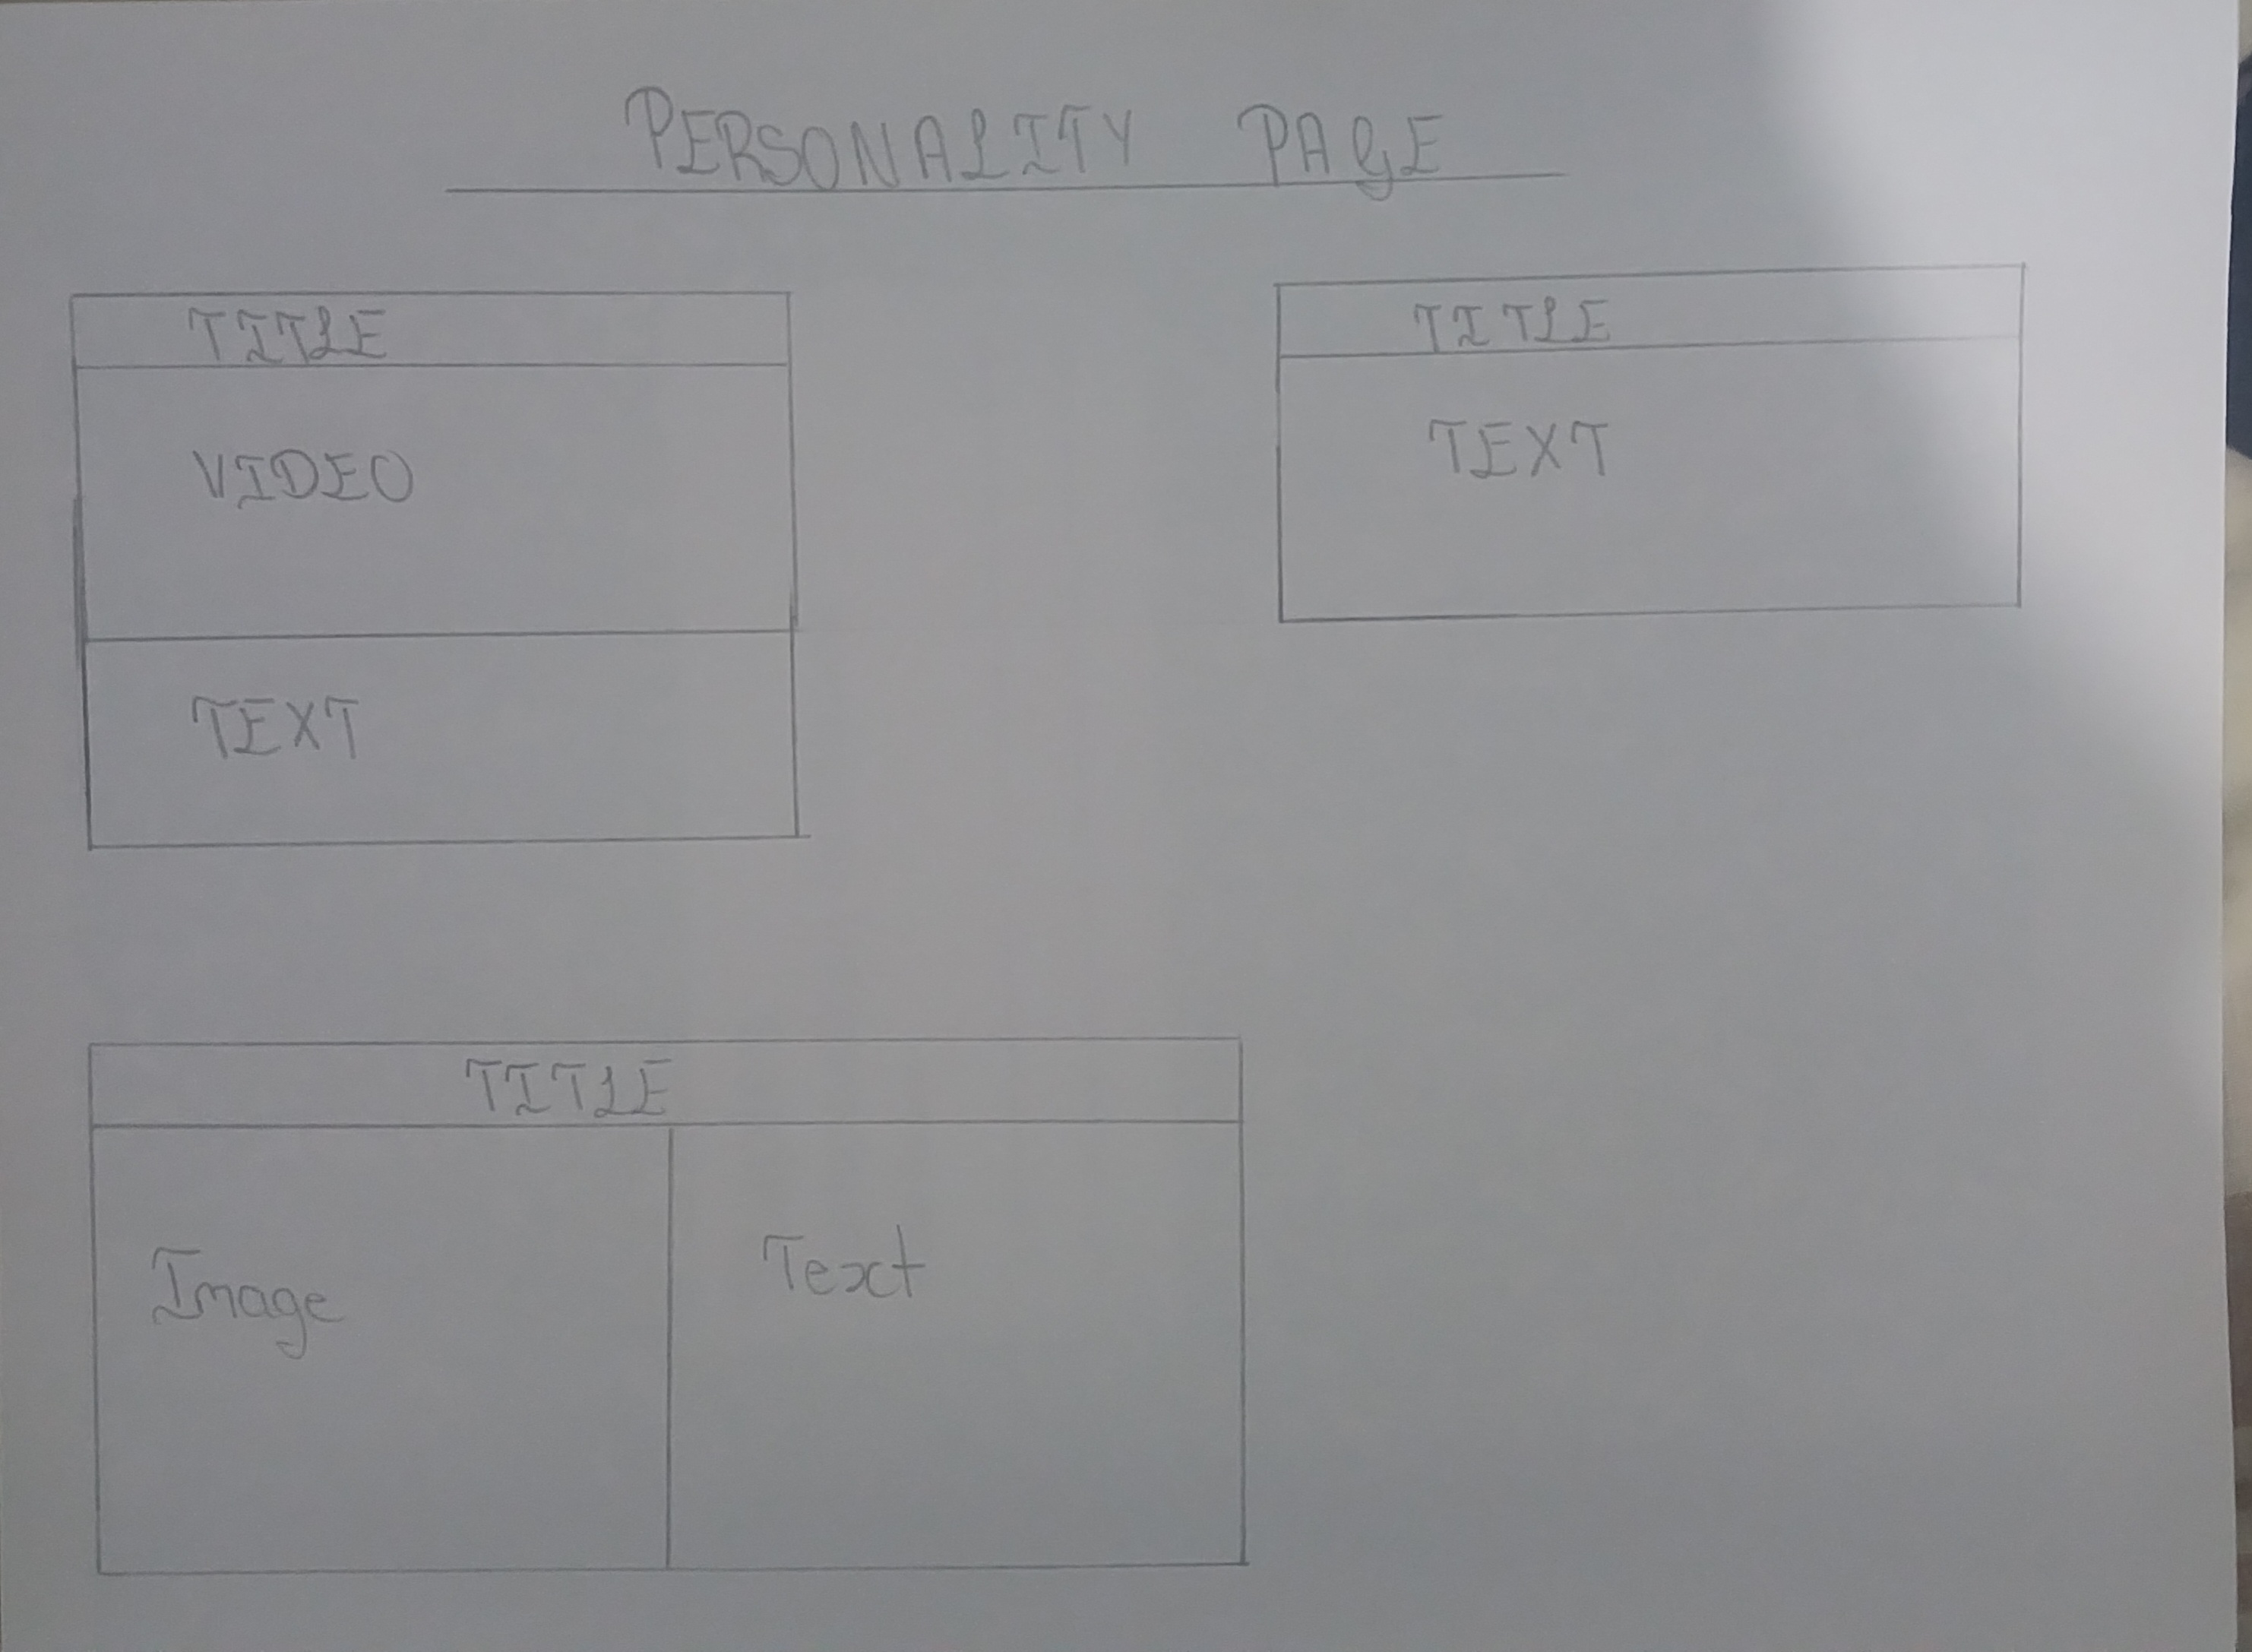 PERSONALITY PAGE
TITLE
VIDEO
TEXT
TITLE
TEXT
TITLE
Image
Text